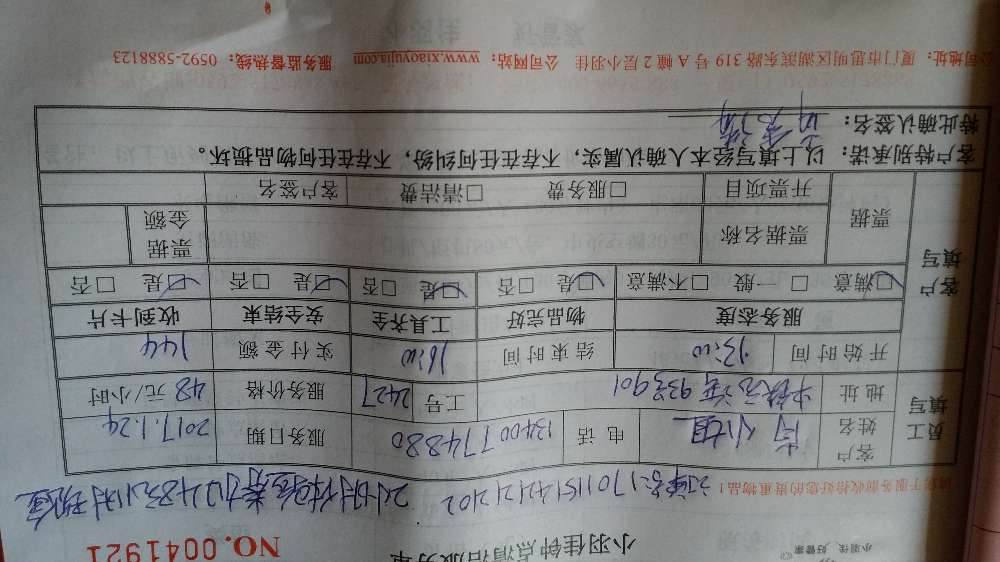 小羽佳 好管家
小羽佳钟点清洁服务单
NO.0041921
请到于服务前收拾好您的贵重物品！
2小时体验券
员工填写
客户姓名
小姐
电话
13400774880
服务日期
2017.1.24
地址
933号901
工号
2427
服务价格
48元/小时
开始时间
13:00
结束时间
16:00
实付金额
144
客户填写
服务态度
物品完好
工具齐全
安全结束
收到卡片
☑满意 □一般 □不满意
☑是 □否
☑是 □否
☑是 □否
☑是 □否
票据
票据名称
票据金额
开票项目
□服务费 □清洁费
客户签名
客户特别承诺：以上填写经本人确认属实，不存在任何纠纷，不存在任何物品损坏。
特此确认签名：
公司地址：厦门市思明区湖滨东路319号A幢2层小羽佳 公司网站：www.xiaoyujia.com 服务监督热线：0592-5888123